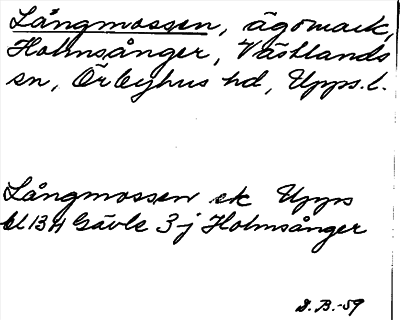 Långmossen, ägomark,
Holmsånger, Västlands
sn, Örbyhus hd, Upps. l.
Långmossen ek Upps
bl 13 H Gävle 3 j Holmsånger
D. B. -59